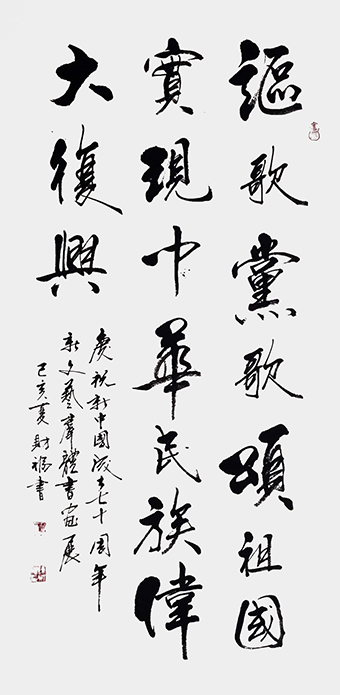 謳歌黨歌頌祖國
實現中華民族偉
大復興
慶祝新中國成立七十周年
新文藝羣體書畫展
己亥夏財福書